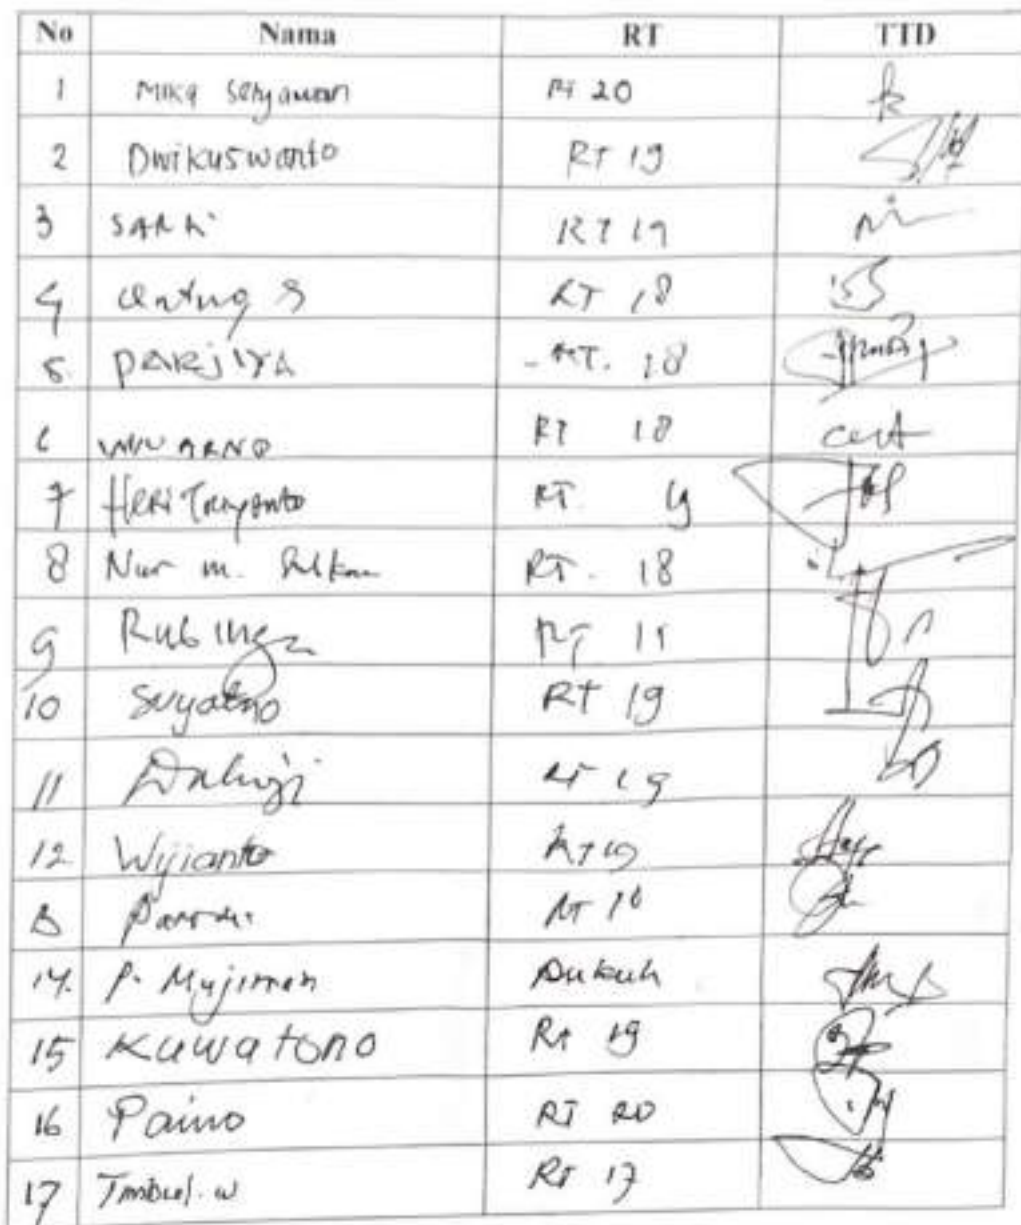 No Nama RT TTD
1 Mika Setyawan RT 20
2 Dwikuswanto RT 19
3 SARLI RT 19
4 Untung S RT 18
5. PARJIYA - RT. 18
6 WINARNO RT 18
7 Heri Triyanto RT. 19
8 Nur m. RT. 18
9 RT
10 Suyatno RT 19
11 RT 19
12 Wijianto RT 19
13 RT 18
14. P. Mujiman Dukuh
15 Kuwatono RT 19
16 Paino RT 20
17 Timbul. w RT 17